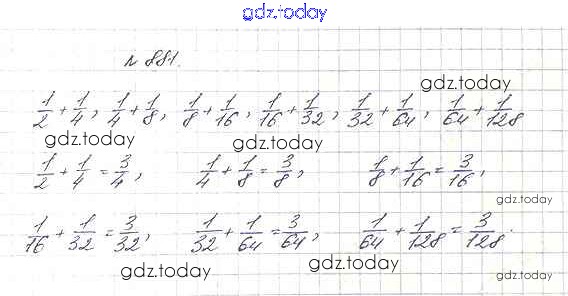 gdz.today
№ 881.
gdz.today
1/2 + 1/4, 1/4 + 1/8, 1/8 + 1/16, 1/16 + 1/32, 1/32 + 1/64, 1/64 + 1/128
gdz.today gdz.today
1/2 + 1/4 = 3/4, 1/4 + 1/8 = 3/8, 1/8 + 1/16 = 3/16,
gdz.today
1/16 + 1/32 = 3/32, 1/32 + 1/64 = 3/64, 1/64 + 1/128 = 3/128.
gdz.today gdz.today gdz.today